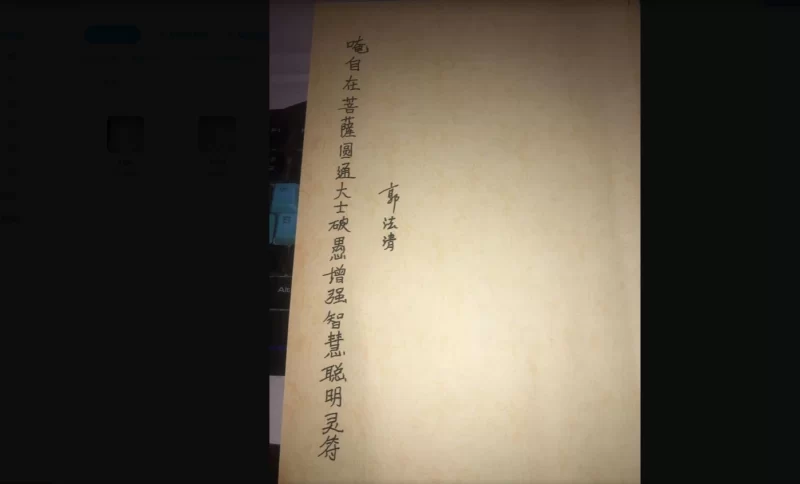 唵自在菩薩圆通大士破愚增强智慧聪明灵符
郭法清